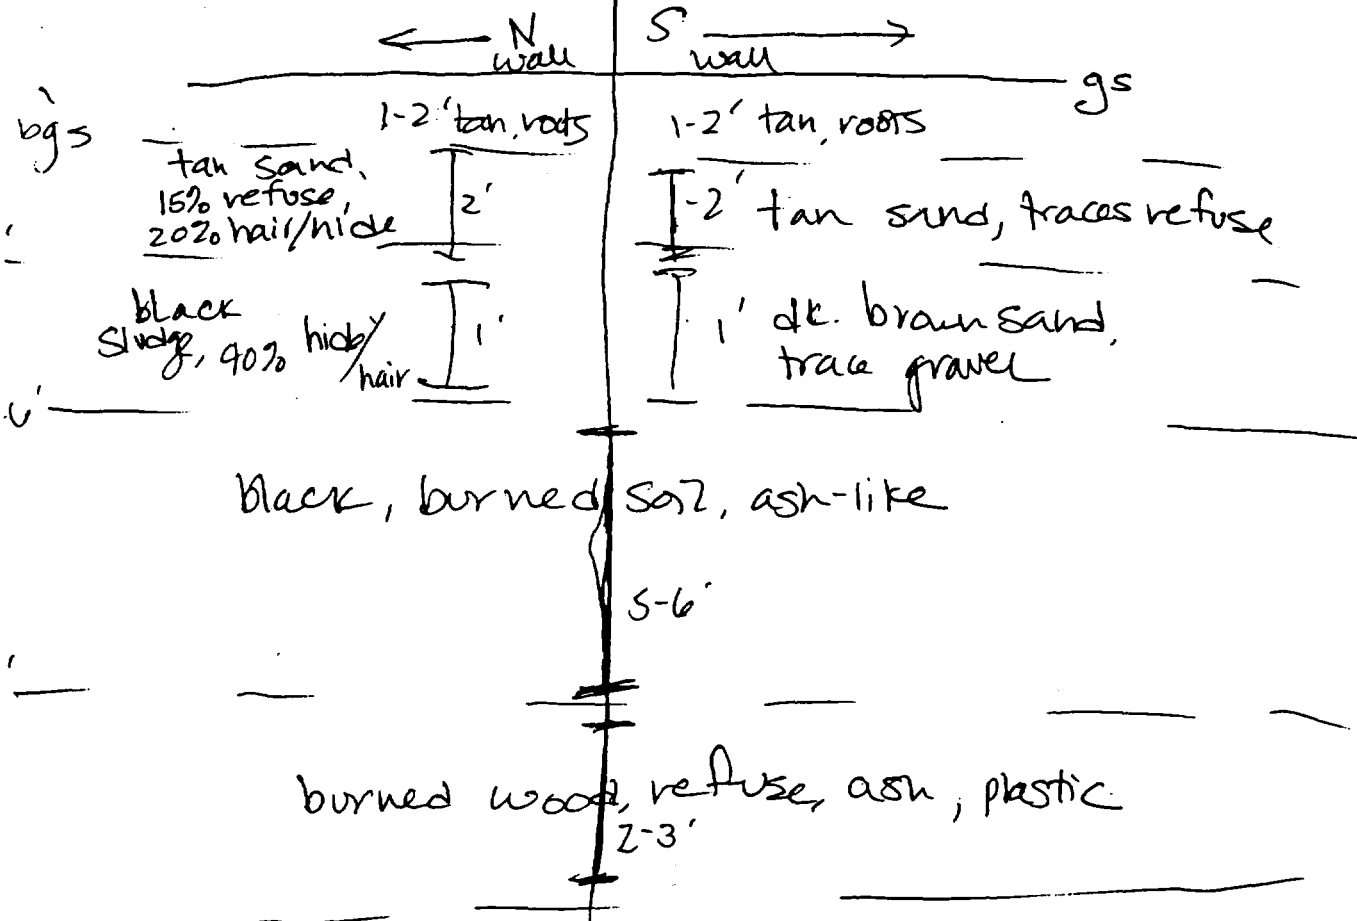 N S
wall wall
gs
bgs
1-2' tan, roots 1-2' tan, roots
tan sand,
15% refuse,
20% hair/hide
2'
-2' tan sand, traces refuse
black
sludge, 90% hide/
hair
1'
1' dk. brown sand,
trace gravel
black, burned soil, ash-like
5-6'
burned wood, refuse, ash, plastic
2-3'